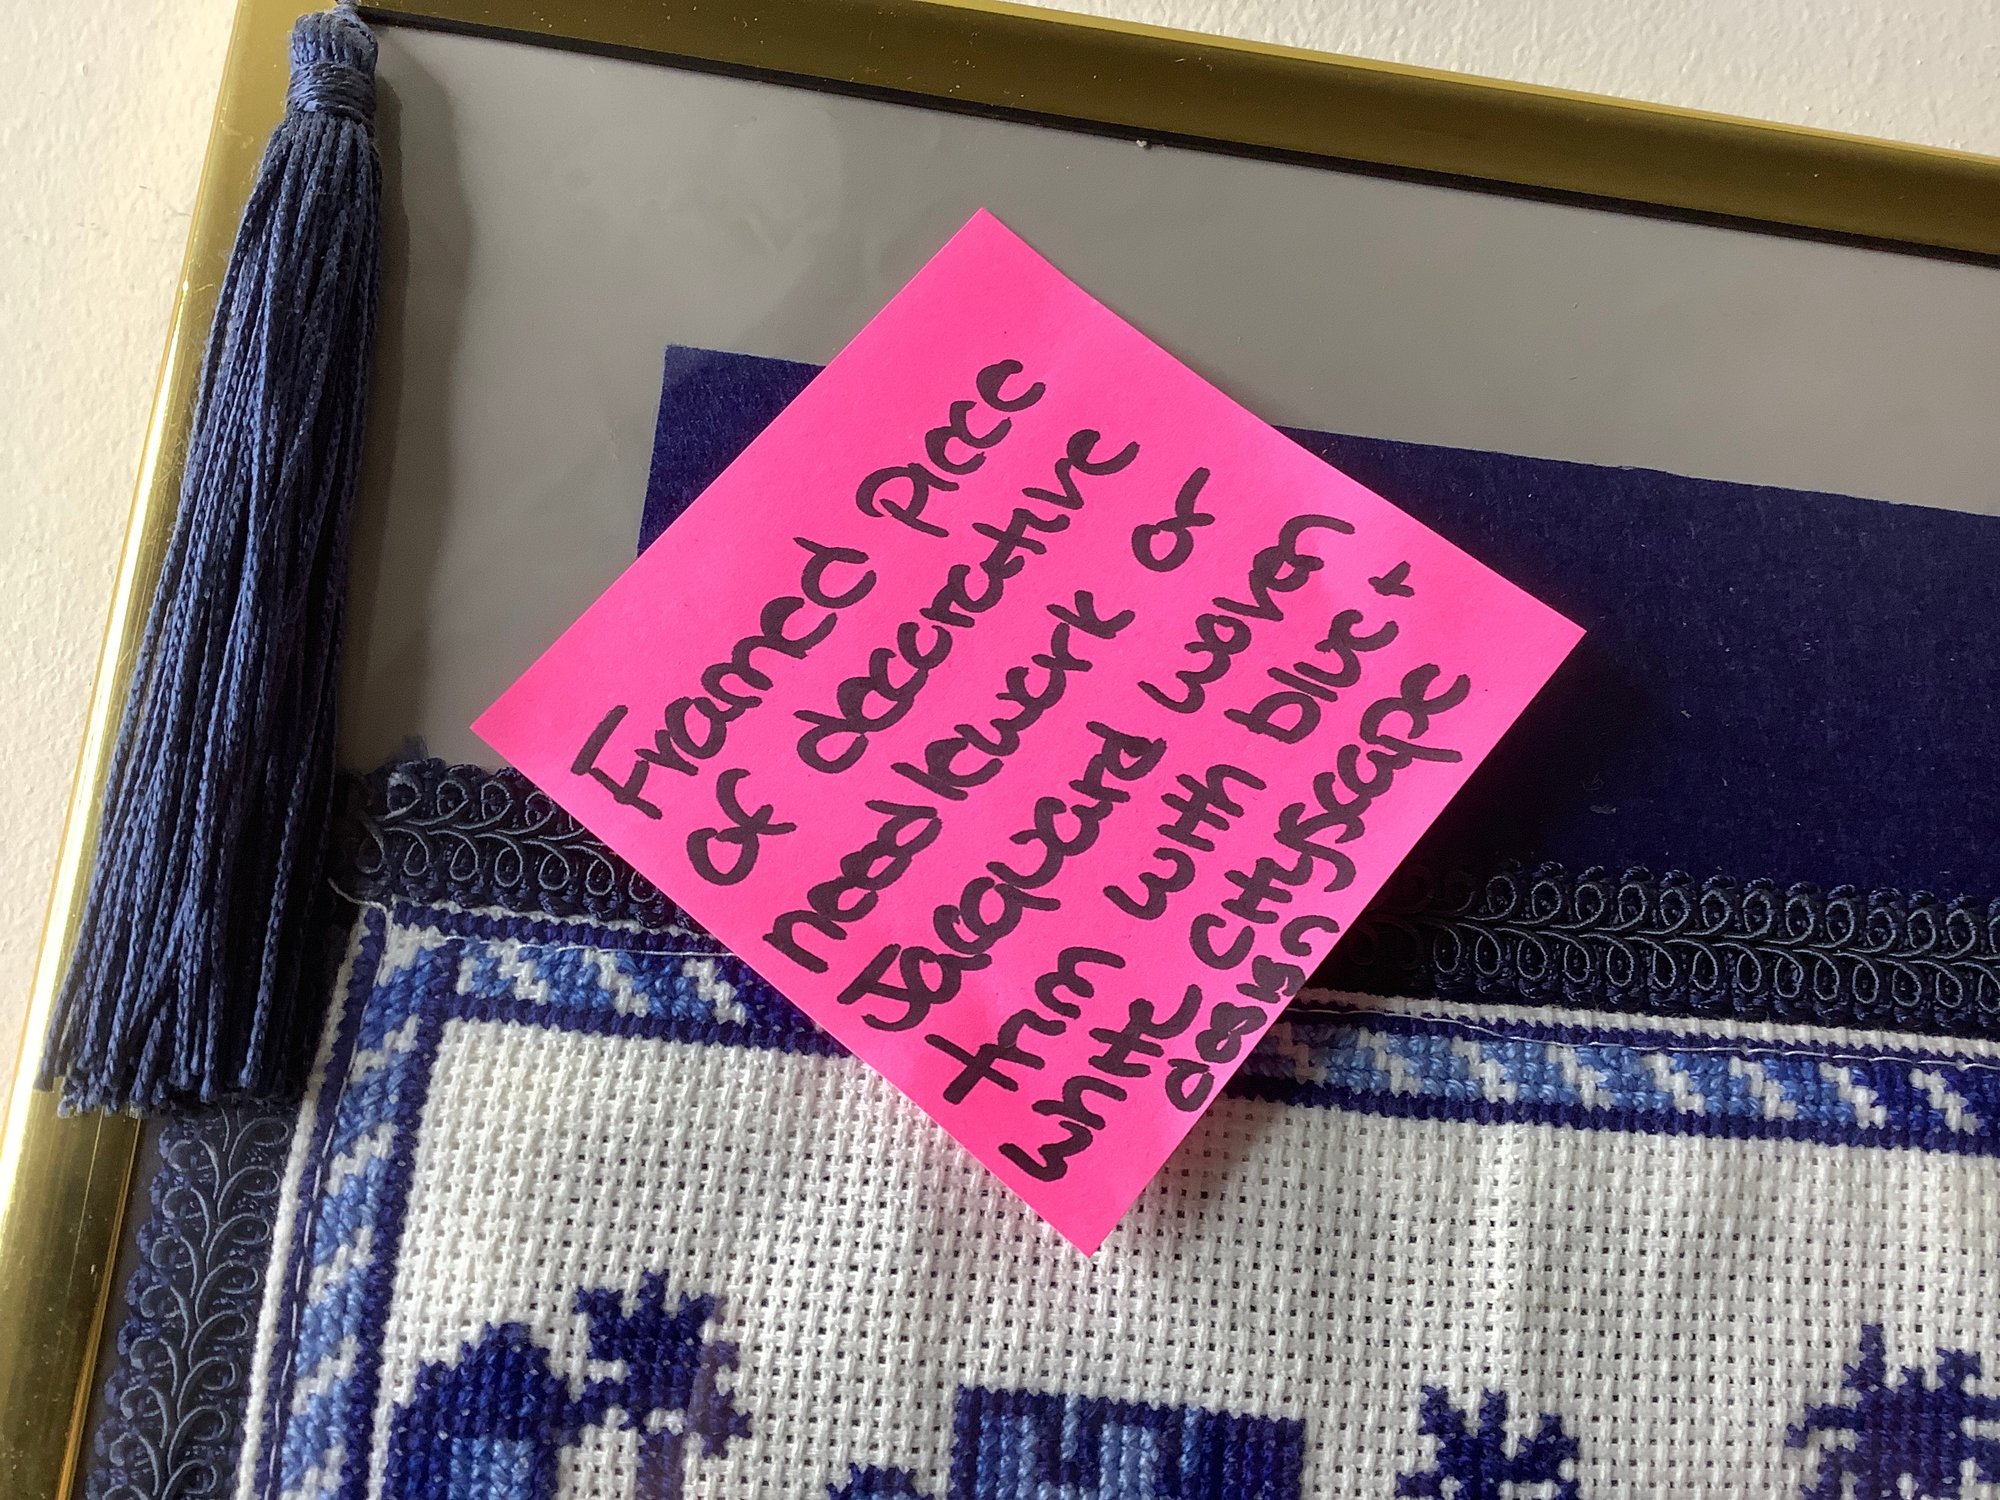 Framed Piece
of decorative
needlework or
Jacquard woven
trim with blue +
white cityscape
design